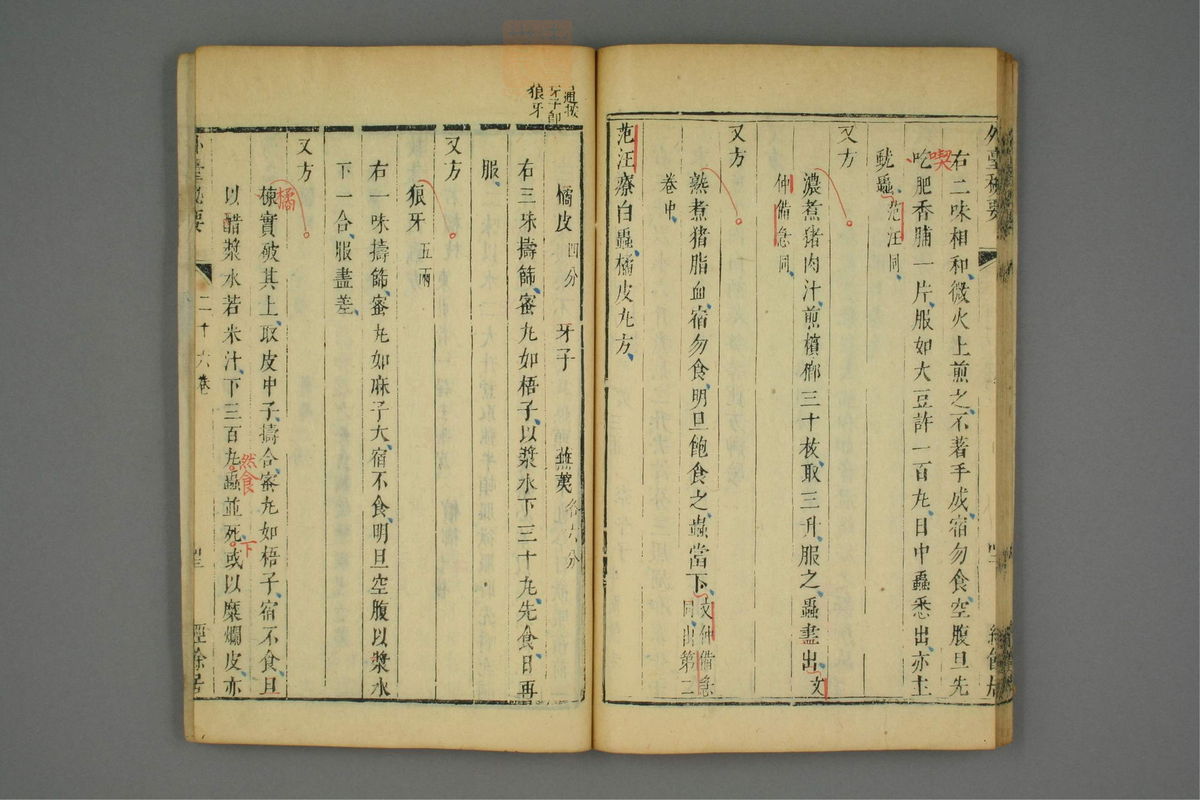 右二味相和微火上煎之不著手成宿勿食空腹旦先
喫
吃肥香脯一片服如大豆許一百丸日中蟲悉出亦主
蚘蟲范汪同
又方
濃煮猪肉汁煎檳榔三十枚取三升服之蟲盡出文
仲備急同
又方
熟煮猪脂血宿勿食明旦飽食之蟲當下文仲備急
同出第二
卷中
范汪療白蟲橘皮丸方
狼牙
橘皮四分 牙子 蕪荑各六分
右三味擣篩蜜丸如梧子以漿水下三十丸先食日再
服
又方
狼牙五兩
右一味擣篩蜜丸如麻子大宿不食明旦空腹以漿水
下一合服盡差
又方
橘
榱實破其上取皮中子擣合蜜丸如梧子宿不食旦
以醋漿水若米汁下三百丸蟲並死或以糜爛皮亦
然食
下
二十六卷